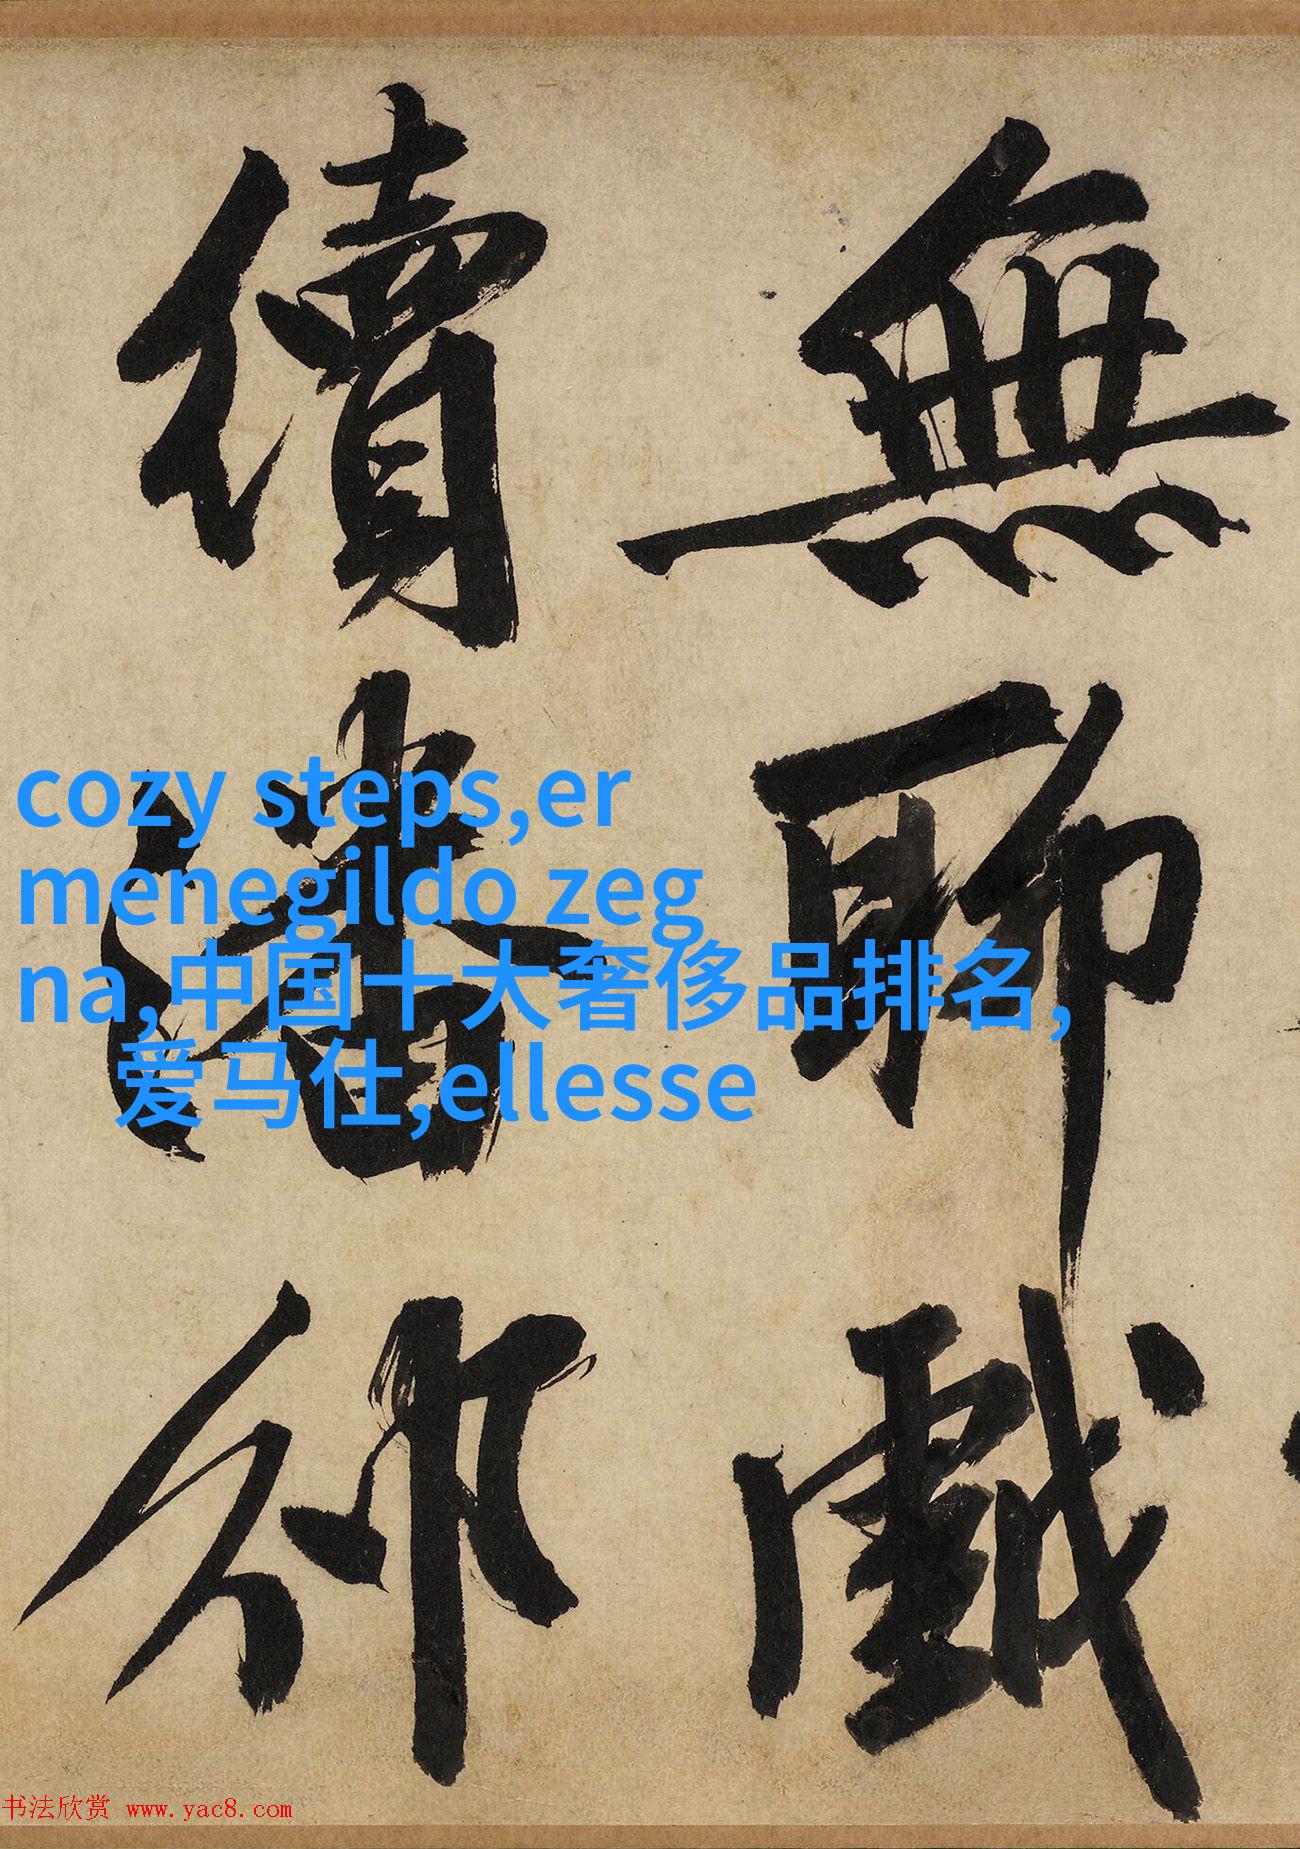 無聊戲
續潘邠
cozy steps,er
menegildo zeg
na,中国十大奢侈品排名,
爱马仕,ellesse
书法欣赏 www.yac8.com